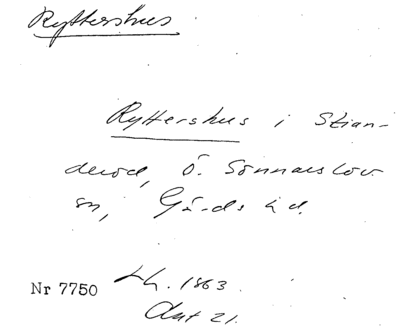 Ryttershus
Ryttershus i Skian-
derod, Ö. Sönnarslov
sn, Gärds hd.
Nr 7750 Lh. 1863.
Akt 21.